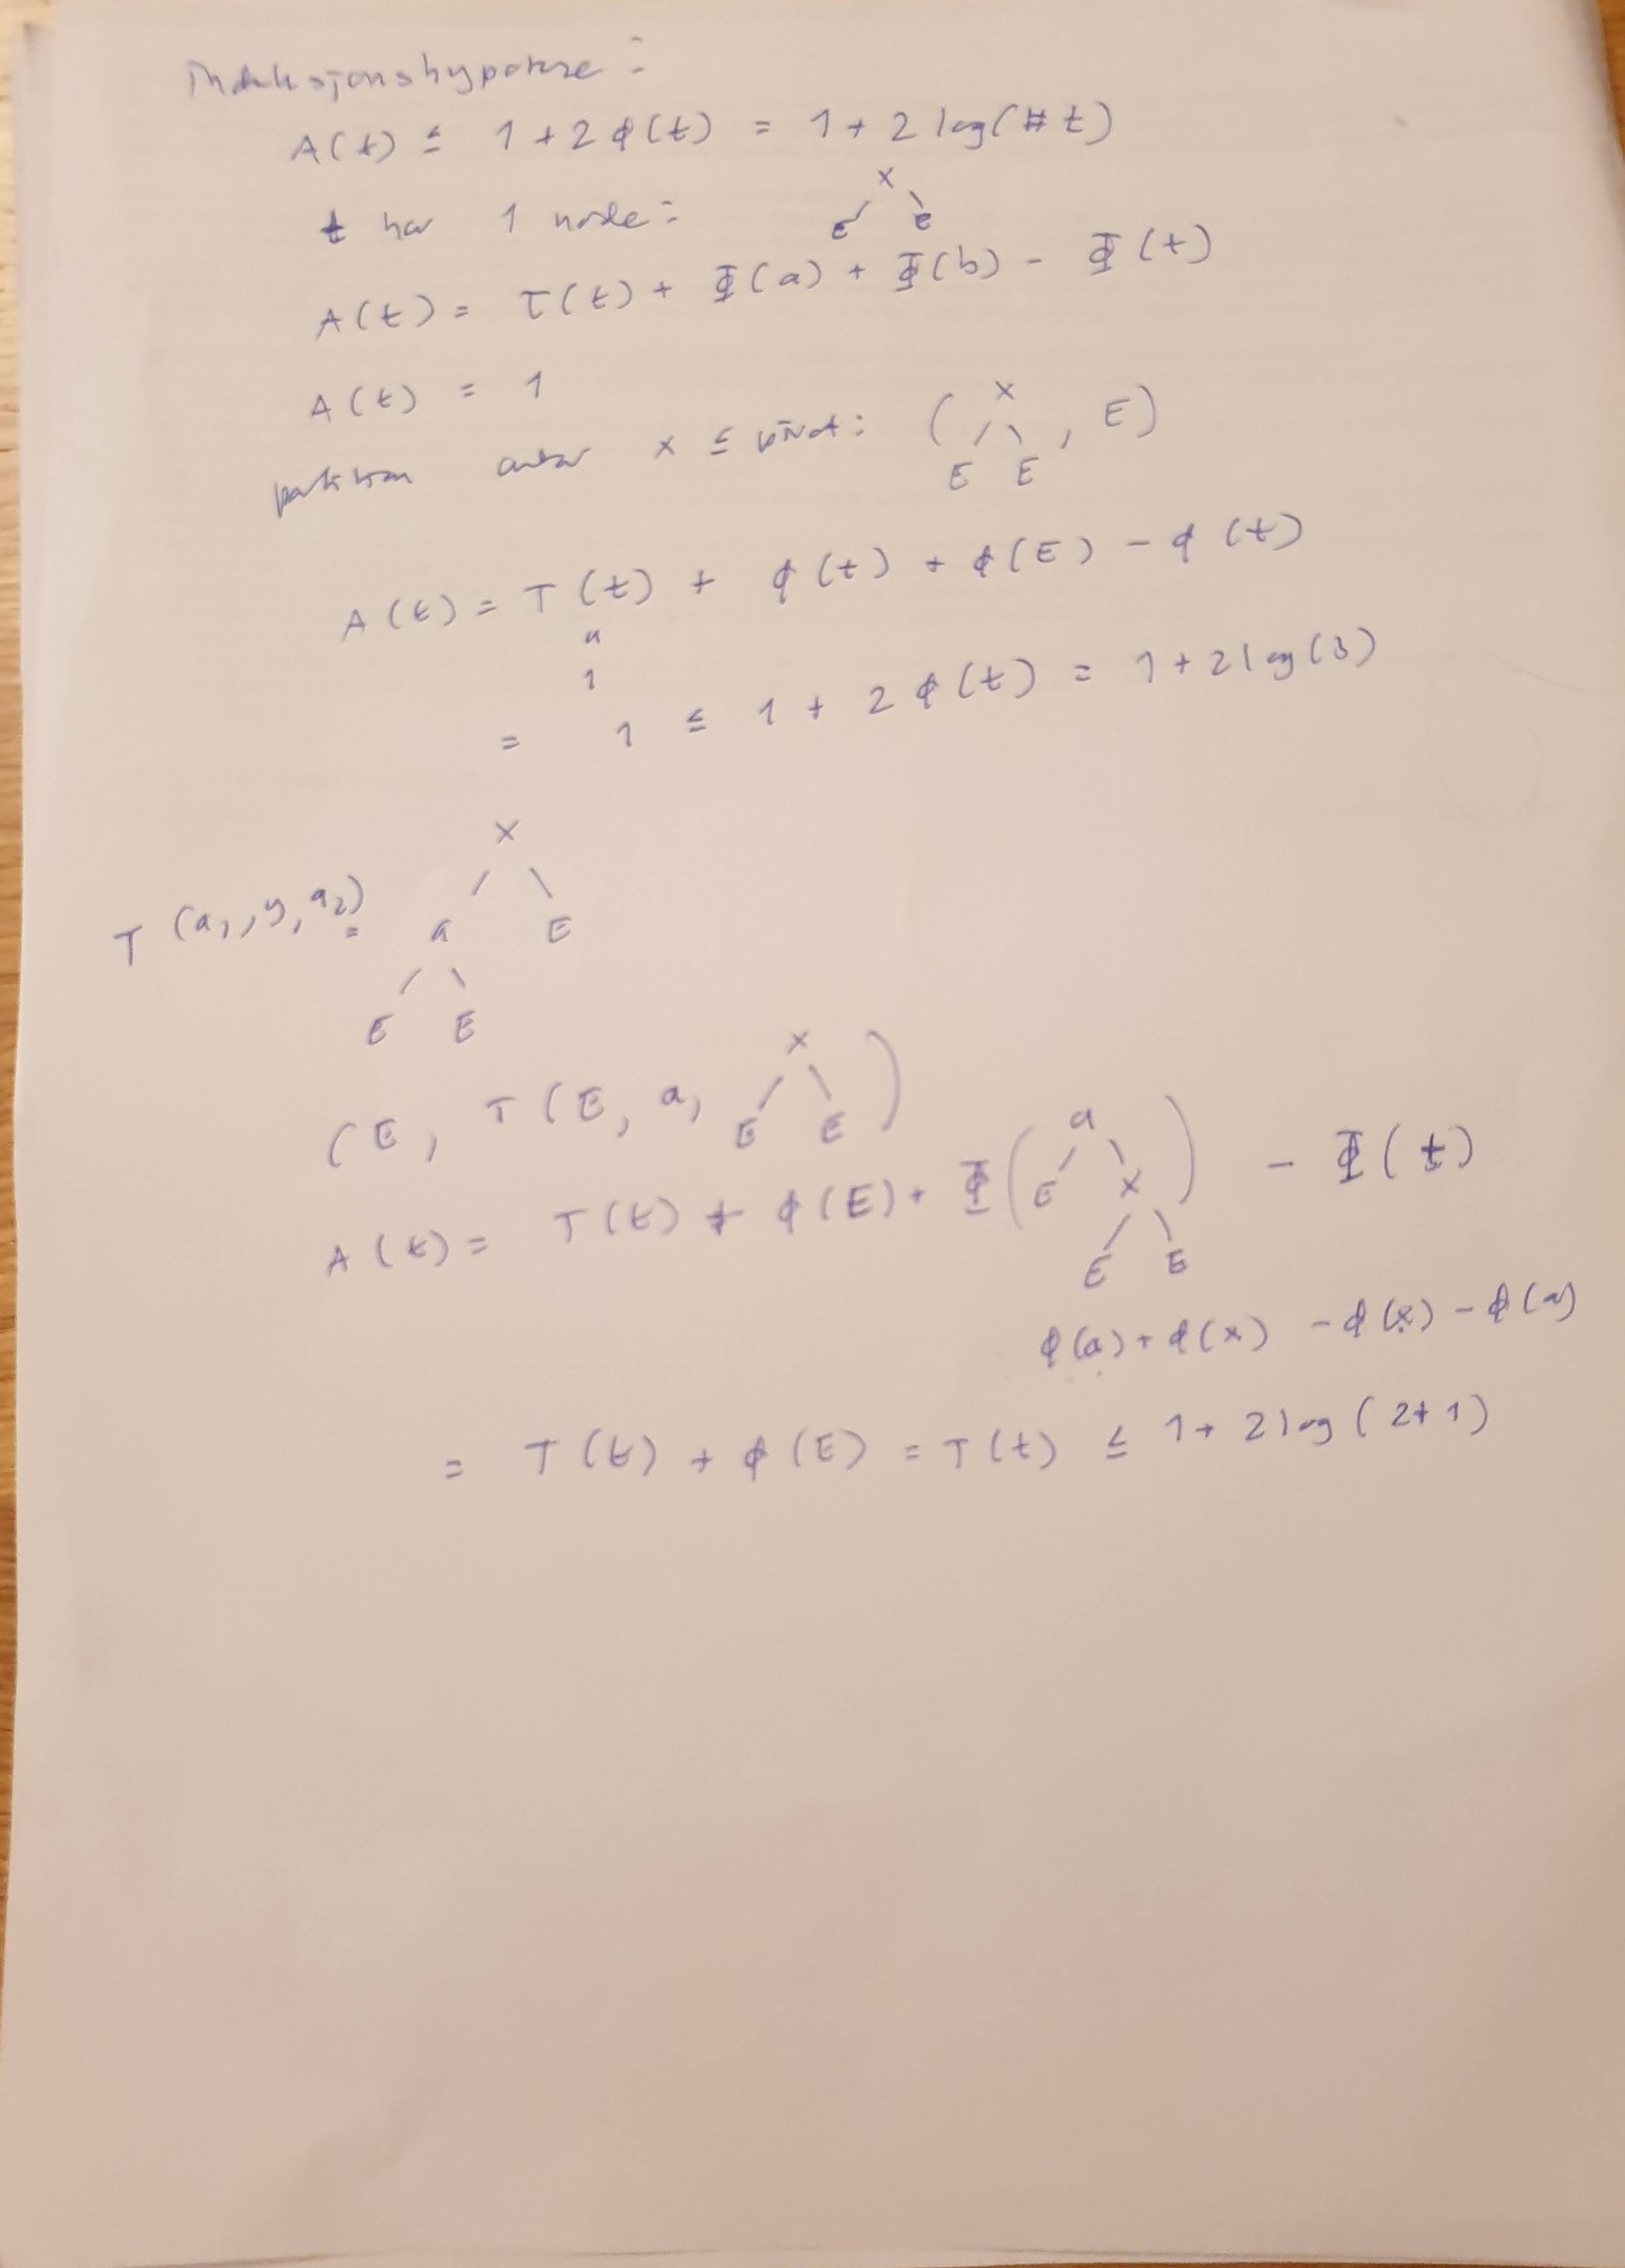 Induksjonshypotese:
A(t) ≤ 1 + 2 φ(t) = 1 + 2 log(# t)
t har 1 node:
x
E E
A(t) = T(t) + Φ(a) + Φ(b) - Φ(t)
A(t) = 1
partition antar x ≤ pivot: ( x , E)
E E
A(t) = T(t) + φ(t) + φ(E) - φ(t)
"
1
= 1 ≤ 1 + 2 φ(t) = 1 + 2 log(3)
x
T(a₁, y, a₂) = a E
E E
x
(E, T(E, a, E E )
a
E x
A(t) = T(t) + φ(E) + Φ( ) - Φ(t)
E E
φ(a) + φ(x) - φ(x) - φ(a)
= T(t) + φ(E) = T(t) ≤ 1 + 2 log(2+1)